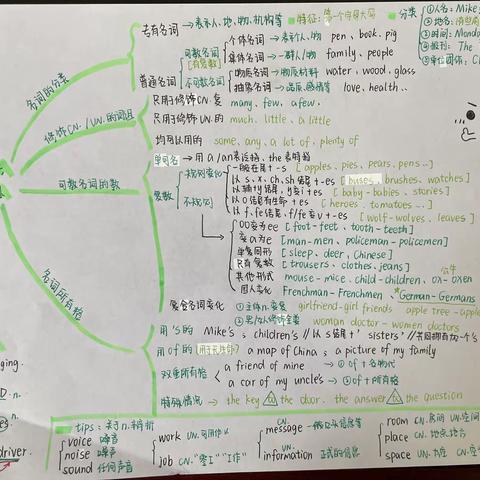 专有名词 → 表示人、地、物、机构等 特征：第一个字母大写 分类
① 人名：Mike
② 地名：
③ 时间：Monda
④ 报刊：The
⑤ 单位团体：C
名词的分类
普通名词
可数名词
[有复数]
不可数名词
个体名词 → 表示个人/物 pen、book、pig
集体名词 → 一群人/物 family、people
物质名词 → 物质材料 water、wood、glass
抽象名词 → 品质、感情等 love、health..
修饰CN./UN.的词组
只用于修饰CN.复 many、few、a few、
只用于修饰UN.的 much、little、a little
均可以用的 some、any、a lot of、plenty of
可数名词的数
单数名 → 用a/an表泛指、the表特指
复数
规则变化
一般在尾+-s [apples、pies、pears、pens...]
以s、x、ch、sh结尾+-es [buses、brushes、watches]
以辅+y结尾，变y变i+es [baby-babies、stories]
以o结尾有生命+es [heroes、tomatoes...]
以f、fe结尾，f/fe变v+-es [wolf-wolves、leaves]
不规则
oo变为ee [foot-feet、tooth-teeth]
变a为e [man-men、policeman-policemen]
单复同形 [sheep、deer、Chinese]
只有复数 [trousers、clothes、jeans]
其他形式 mouse-mice、child-children、ox-oxen
公牛
国人变化 Frenchman-Frenchmen、German-Germans
复合名词变化
① 主体n.变复 girlfriend-girl friends apple tree-apple
② 男/女人修饰全变 woman doctor-women doctors
名词所有格
用's的 Mike's；children's//以s结尾+' sisters'//共同拥有加一个's
用of的 a map of China；a picture of my family
双重所有格
a friend of mine → ① of+名物代
a car of my uncle's → ② of+所有格
特殊情况 the key to the door、the answer to the question
ging.
D.n.
es
driver.
tips：关于n.辨析
voice 嗓音
noise 噪声
sound 任何声音
work UN.
job CN."零工""工作"
CN.
message 一
UN.
information 正式的信息
room CN.房间 UN.空间
place CN.地点地方
space UN.太空 CN.空